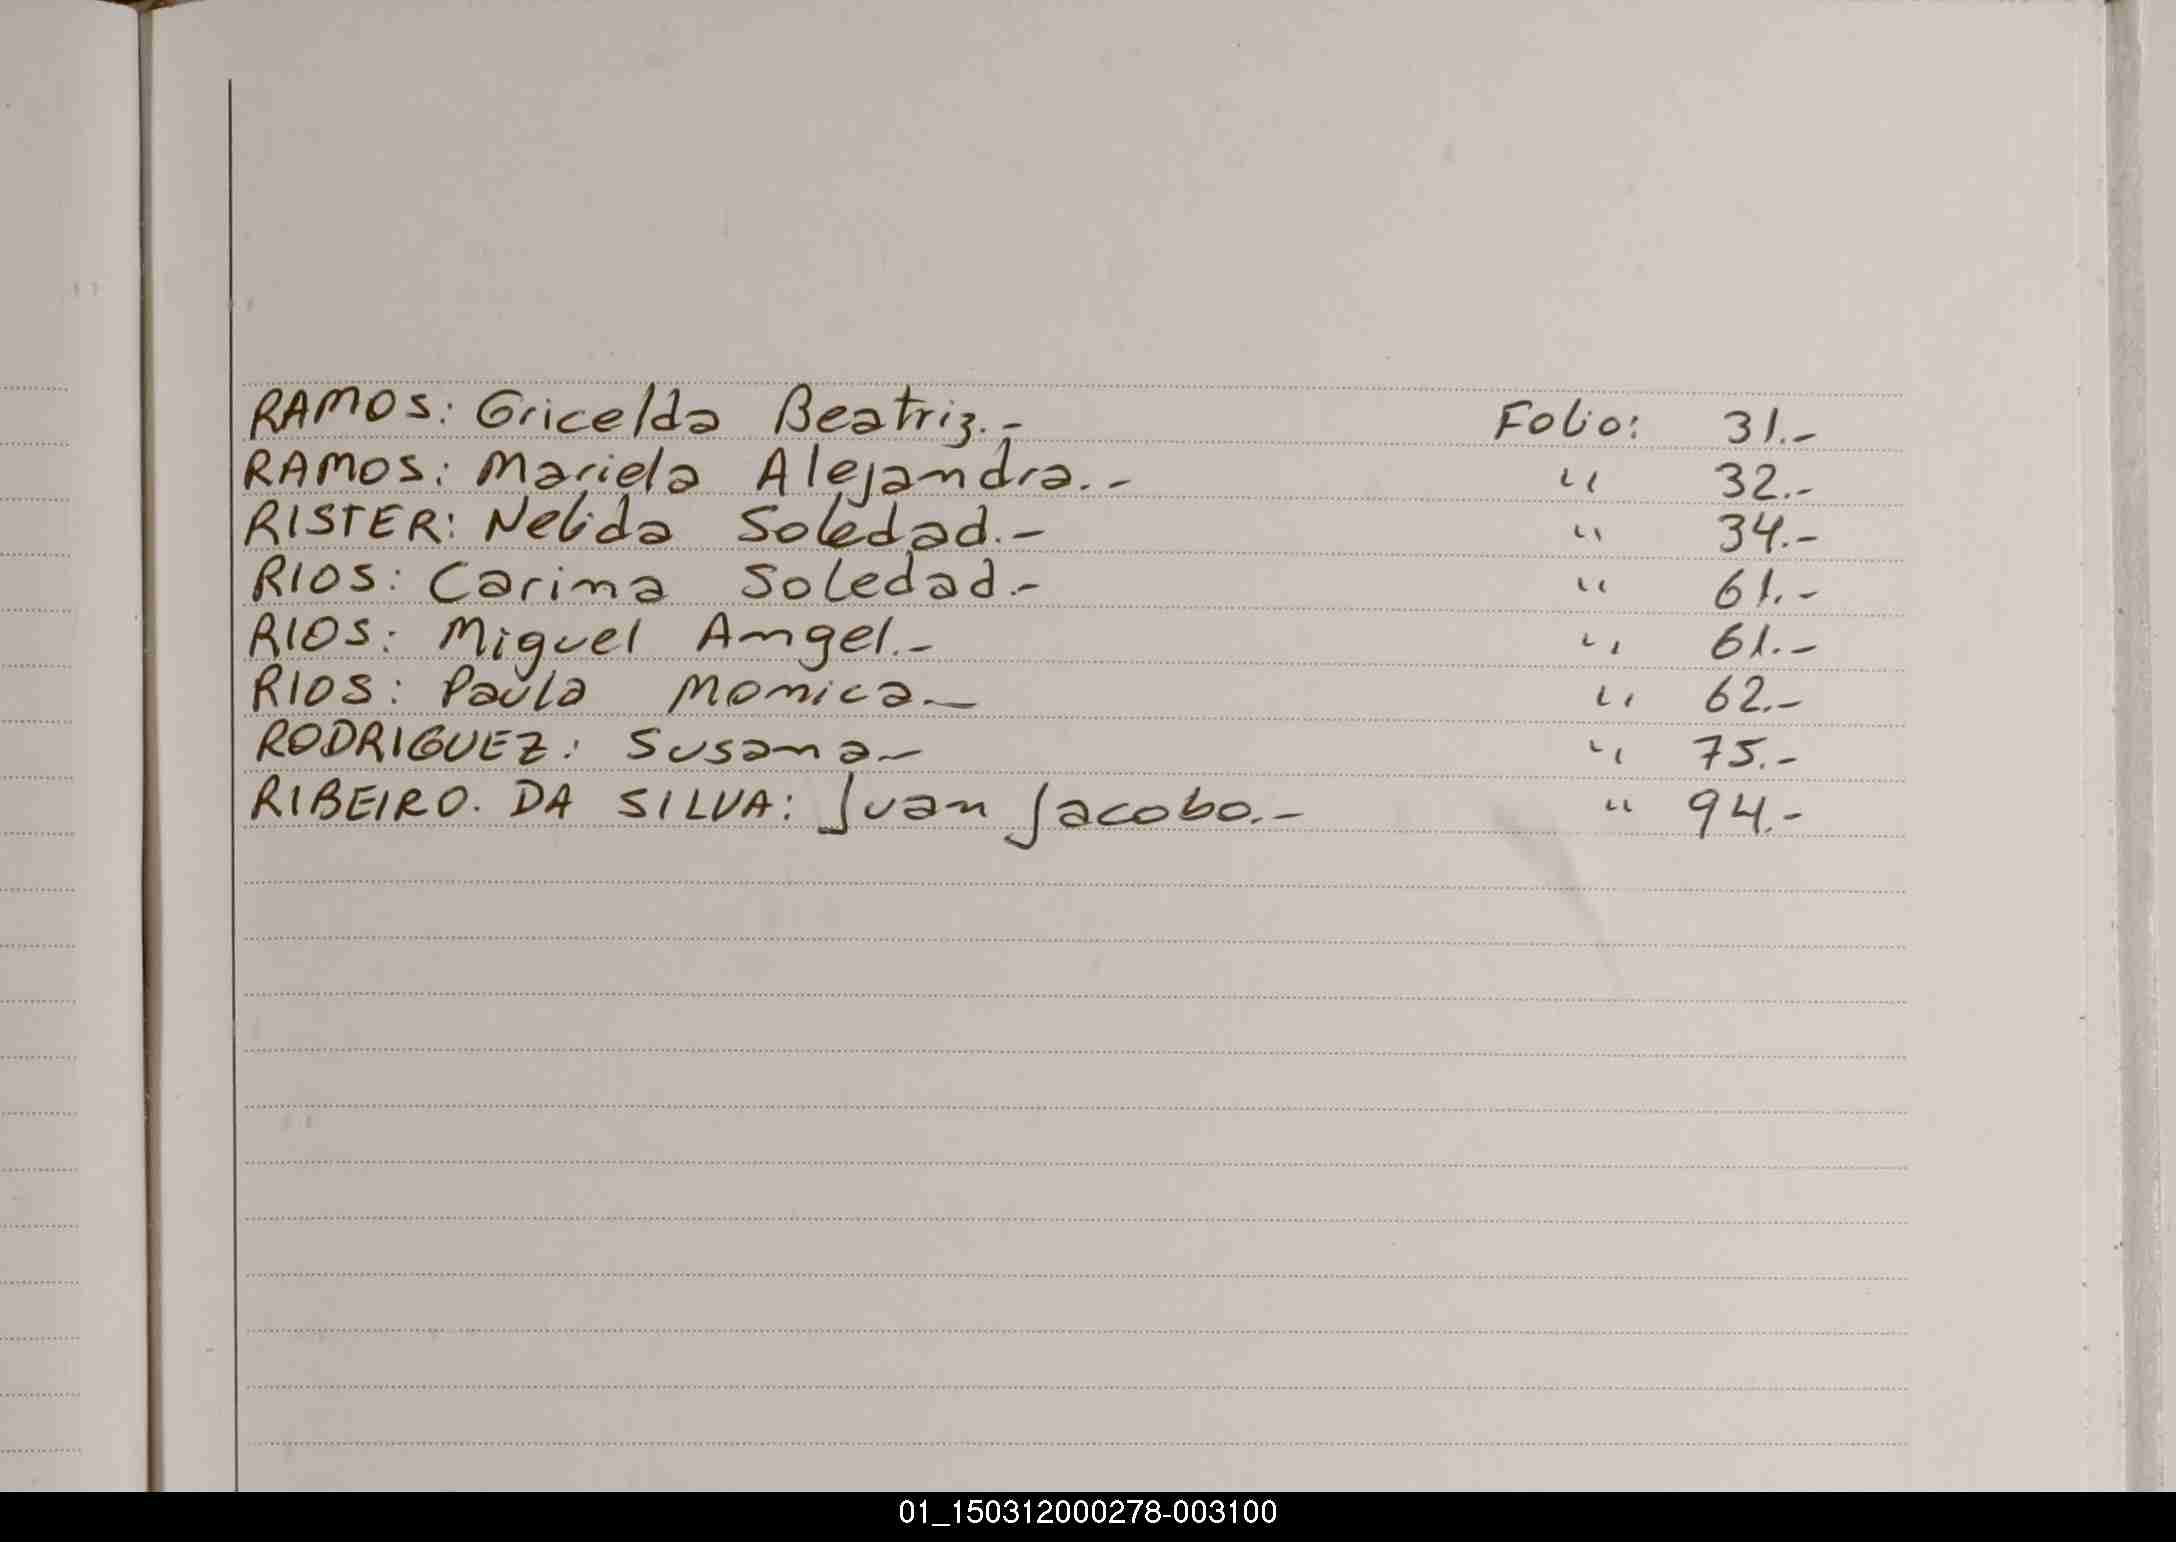 RAMOS: Gricelda Beatriz.- Folio: 31.-
RAMOS: Mariela Alejandra.- " 32.-
RISTER: Nelida Soledad.- " 34.-
RIOS: Carina Soledad.- " 61.-
RIOS: Miguel Angel.- " 61.-
RIOS: Paula Monica.- " 62.-
RODRIGUEZ: Susana.- " 75.-
RIBEIRO. DA SILVA: Juan Jacobo.- " 94.-
01_150312000278-003100